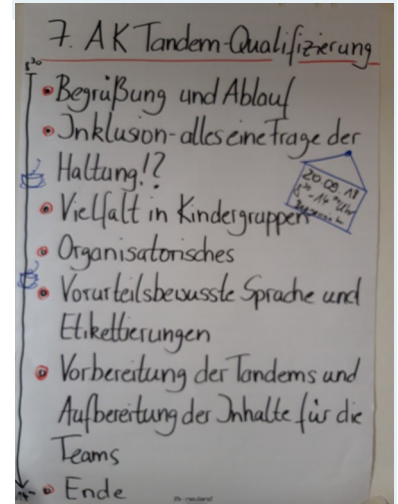 7. AK Tandem-Qualifizierung
8³⁰
• Begrüßung und Ablauf
• Inklusion - alles eine Frage der
Haltung!?
20.09.18
8³⁰ - 14⁰⁰ Uhr
• Vielfalt in Kindergruppen
• Organisatorisches
• Vorurteilsbewusste Sprache und
Etikettierungen
• Vorbereitung der Tandems und
Aufbereitung der Inhalte für die
Teams
• Ende
neuland